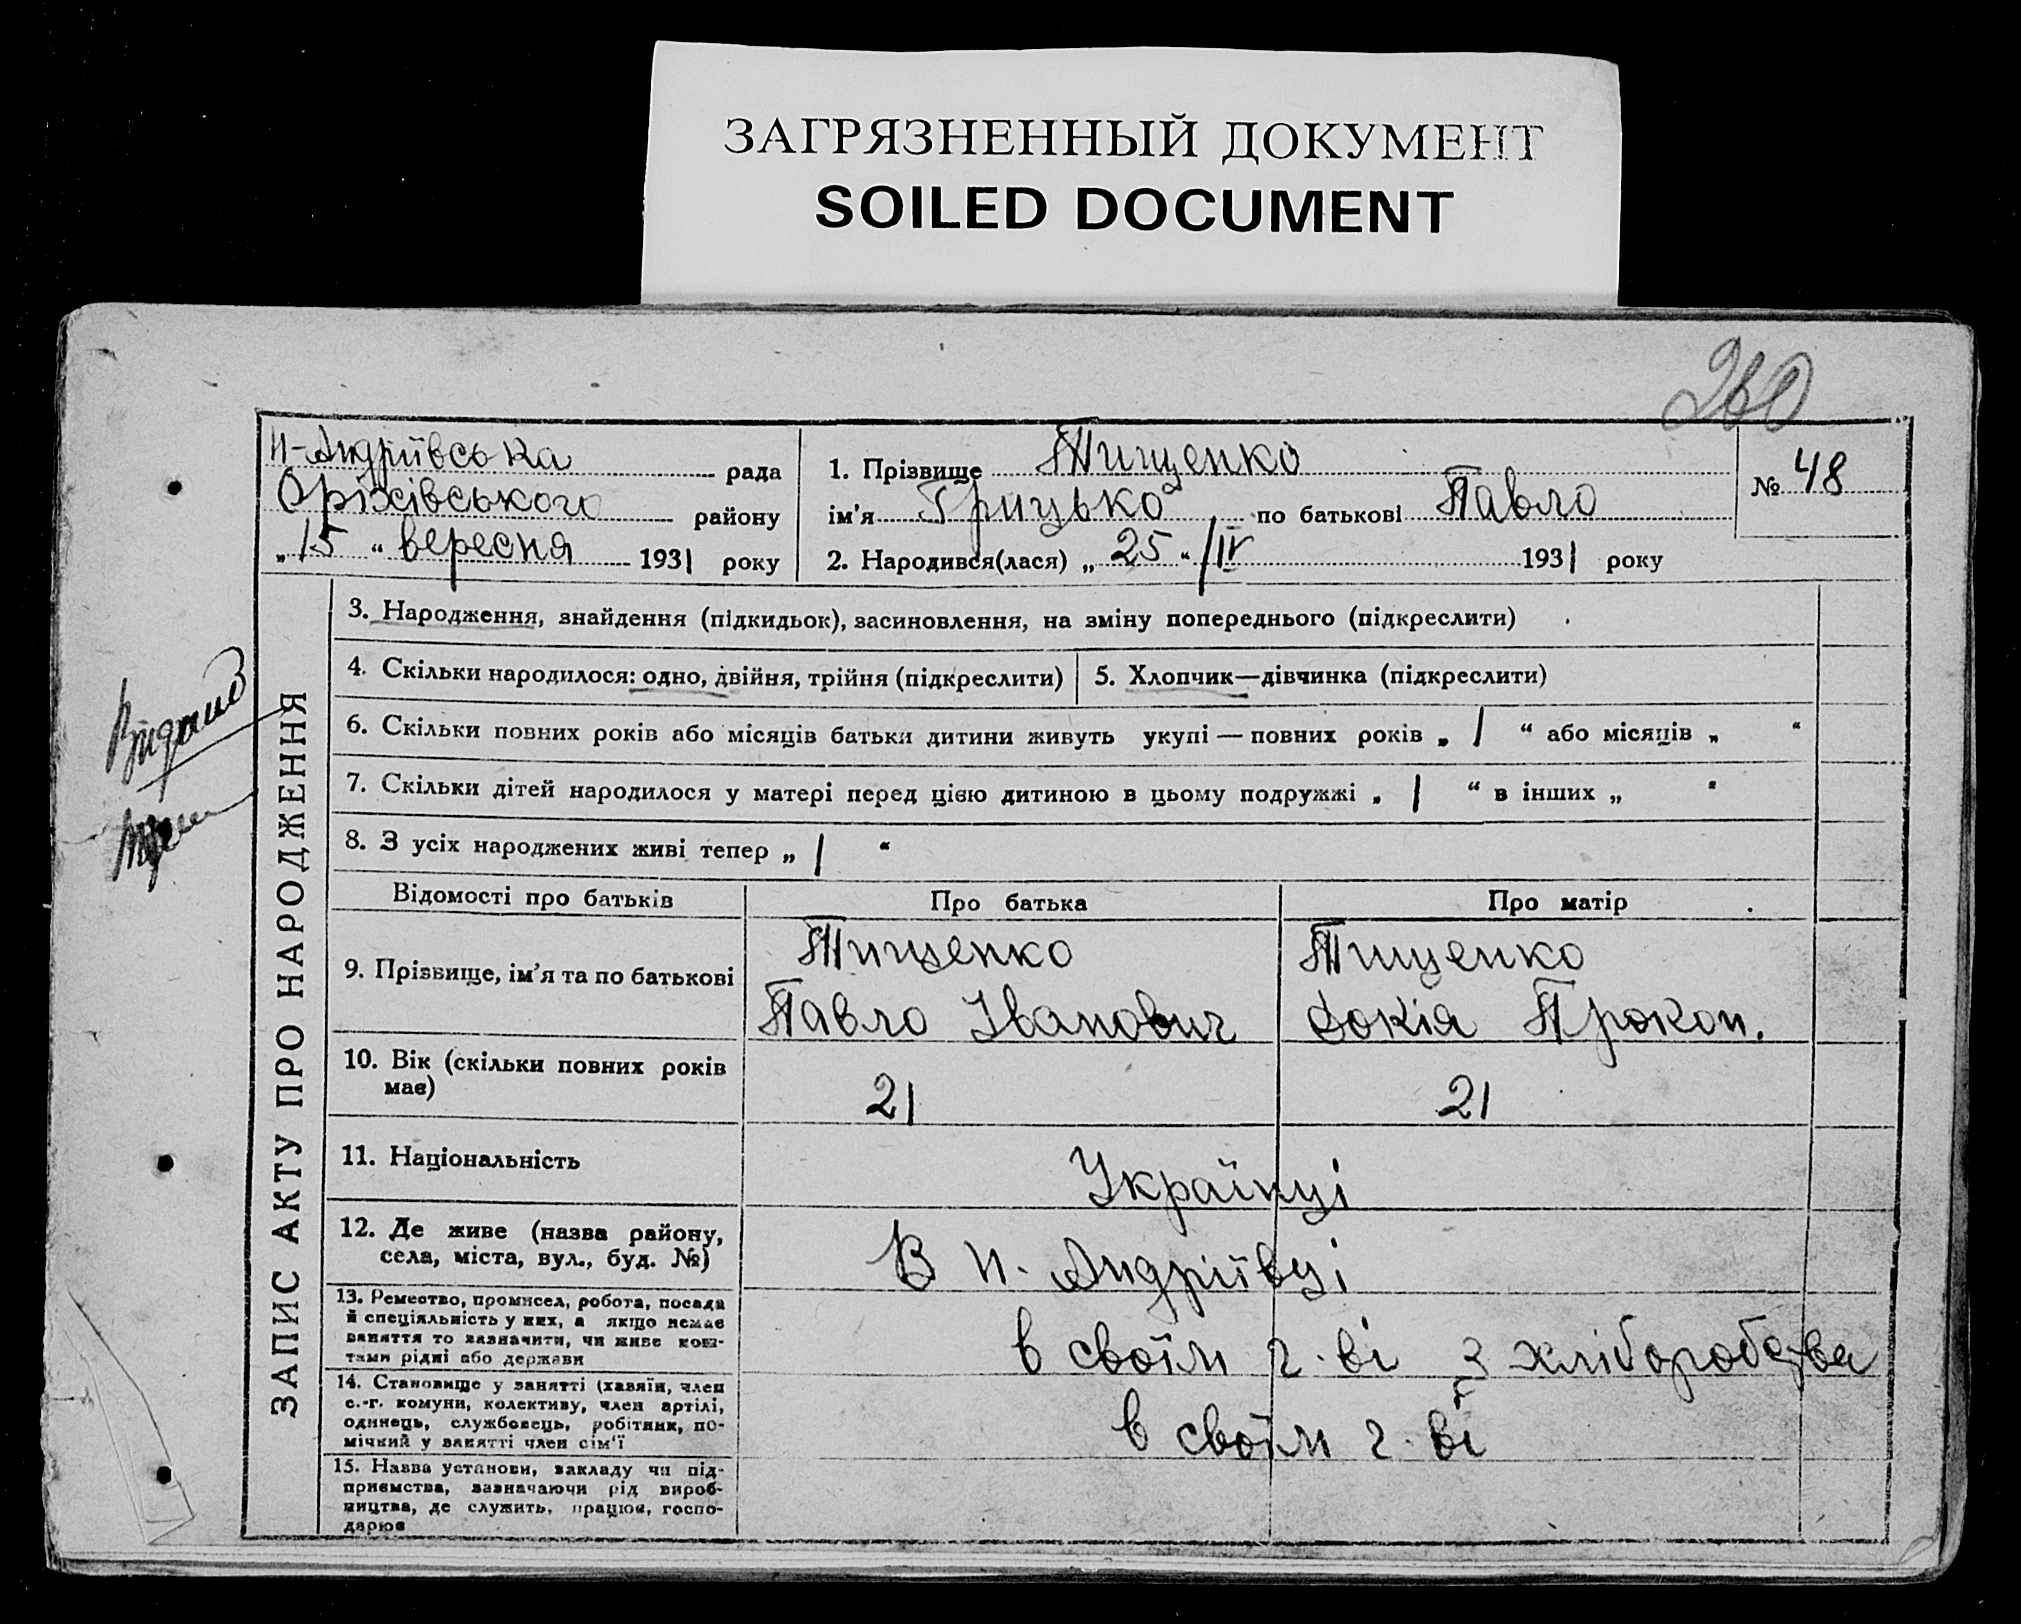 ЗАГРЯЗНЕННЫЙ ДОКУМЕНТ
SOILED DOCUMENT
260
Н-Андріївська рада
Оріхівського району
„15“ вересня 1931 року
1. Прізвище Тищенко
ім'я Грицько по батькові Павло
2. Народився(лася) „25“/IV 1931 року
№ 48
Видано
ЗАПИС АКТУ ПРО НАРОДЖЕННЯ
3. Народження, знайдення (підкидьок), засиновлення, на зміну попереднього (підкреслити)
4. Скільки народилося: одно, двійня, трійня (підкреслити)
5. Хлопчик—дівчинка (підкреслити)
6. Скільки повних років або місяців батьки дитини живуть укупі — повних років „ 1 “ або місяців „ “
7. Скільки дітей народилося у матері перед цією дитиною в цьому подружжі „ 1 “ в інших „ “
8. З усіх народжених живі тепер „ 1 “
Відомості про батьків
Про батька
Про матір
9. Прізвище, ім'я та по батькові
Тищенко
Павло Іванович
Тищенко
Докія Прокоп.
10. Вік (скільки повних років
має)
21
21
11. Національність
Українці
12. Де живе (назва району,
села, міста, вул., буд. №)
В Н. Андріївці
13. Ремество, промисел, робота, посада
й спеціяльність у них, а якщо немає
заняття то зазначити, чи живе кош-
тами рідні або держави
в своїм г-ві з хліборобства
14. Становище у занятті (хазяїн, член
с.-г. комуни, колективу, член артілі,
одинець, службовець, робітник, по-
мічний у занятті член сім'ї
в своїм г-ві
15. Назва установи, закладу чи під-
приємства, зазначаючи рід вироб-
ництва, де служить, працює, госпо-
дарює